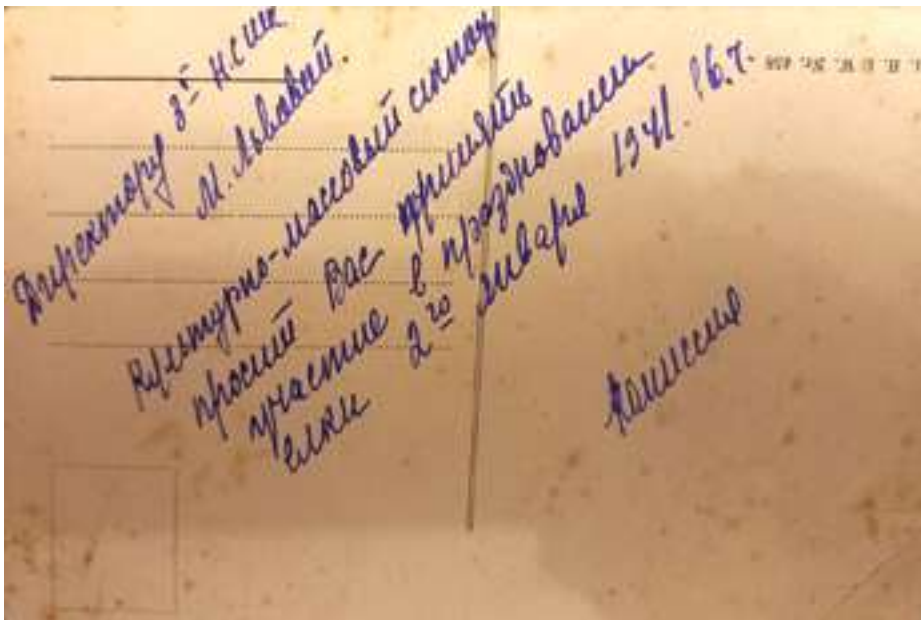 Директору 3й НСШ
М. Львовой.
Культурно-массовый сектор
просит Вас принять
участие в праздновании
елки 2го января 1941. в 6.ч.
Комиссия
B. E. W. Nr. 458